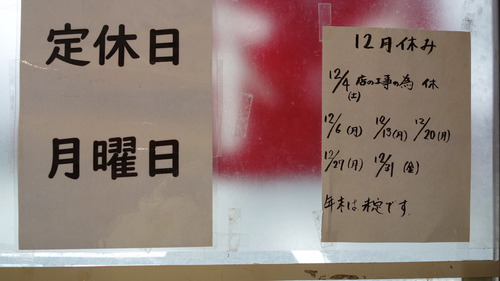 定休日
月曜日
12月休み
12/4(土) 店の工事の為 休
12/6(月) 12/13(月) 12/20(月)
12/27(月) 12/31(金)
年末は未定です